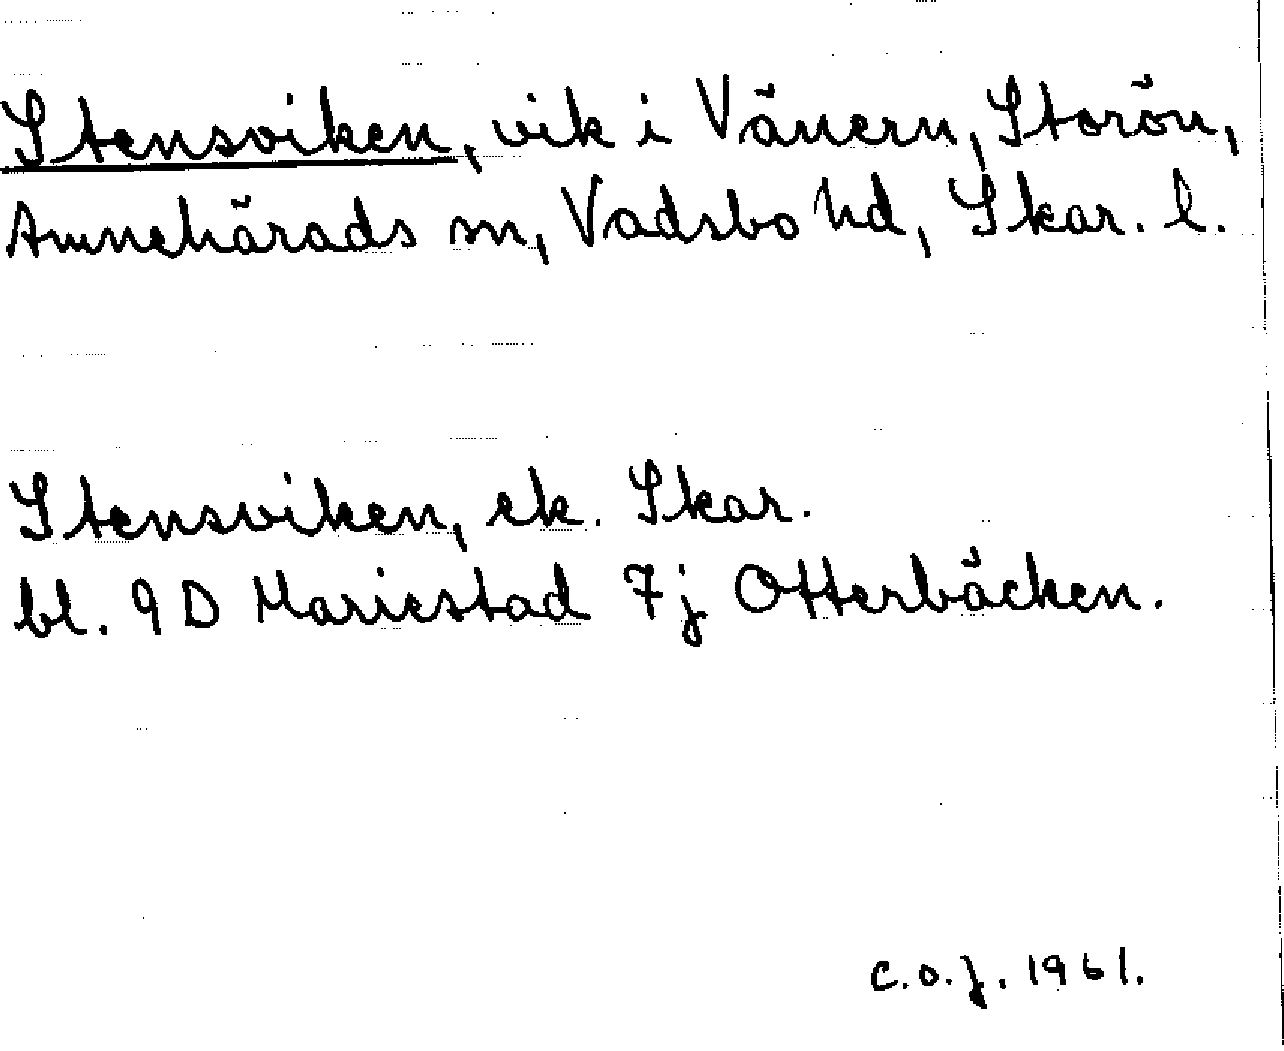 Stensviken, vik i Vänern, Storön,
Amnehärads sn, Vadsbo hd, Skar. l.
Stensviken, ek. Skar.
bl. 9 D Mariestad 7j Otterbäcken.
C.O.J. 1961.